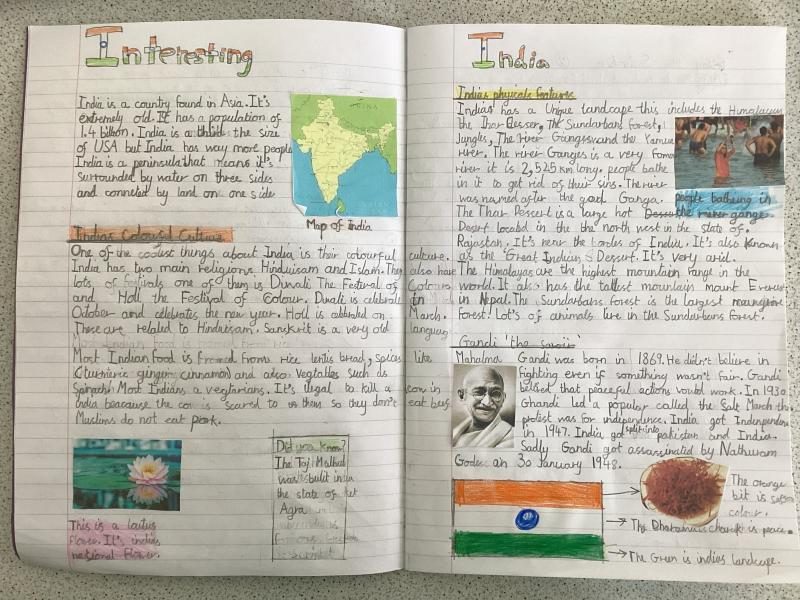 Interesting
India is a country found in Asia. It's
extremely old. It has a population of
1.4 billion. India is a third the size
of USA but India has way more people
India is a peninsula that means it's
surrounded by water on three sides
and conneted by land on one side
Map of India
Indias Colourful Culture
One of the coolest things about India is their colourful culture.
India has two main religions, Hinduisam and Islam. They also have
lots of festivals one of them is Duwali The Festival of Colours
and Holl the Festival of Colour. Duwali is celebrate in
October and celebrates the new year. Holl is celebrated on March.
These are related to Hinduisam. Sanskrit is a very old language
Most Indian food is fromed from rice lentis bread, spices like
(turmeric gingem cinnamon) and also Vegtables such as
Spinach. Most Indians a vegtarians. It's llegal to kill a cow in
India beacause the cow is scared to us them so they don't eat beef.
Muslims do not eat pork.
This is a loutus
flower. It's indias
national flower.
Did you know?
The Taji Malhal
was bulit in
the state of
Agra
India
Indias physicals features
Indias has a Unique landcape this includes the Himalayas
the Thar Desser, The Sundarbans forest,
Jungles, The river Ganges and the Yamuna
river. The river Ganges is a very Famous
river it is 2,525 km long. people bathe
in it to get rid of their sins. The river
was named after the god Ganga.
people batheing in
the river gange
The Thar Dessert is a large hot
Desert locatid in the the north west in the state of.
Rajastan. It's near the bordes of India. It's also Known
as the "Great Indians Dessert. It's very arid.
The Himalayas are the highest mountain range in the
world. It also has the tallest mountain mount Everest
in Nepal. The Sundarbans forest is the largest mangrove
forest! Lot's of animals live in the Sundarbans forest.
Gandi 'the
Mahatma Gandi was born in 1869. He didn't believe in
fighting even if something wasn't fair. Gandi
belived that peaceful actions would work. In 1930
Ghandi led a popular called the Salt March the
protest was for independence. India got Independence
in 1947. India got split into pakistan and India.
Sadly Gandi got assassinated by Nathuram
Godse on 30 January 1948.
The orange
bit is safron
colour.
The Dharmana charck is peace.
The Green is indias landcape.